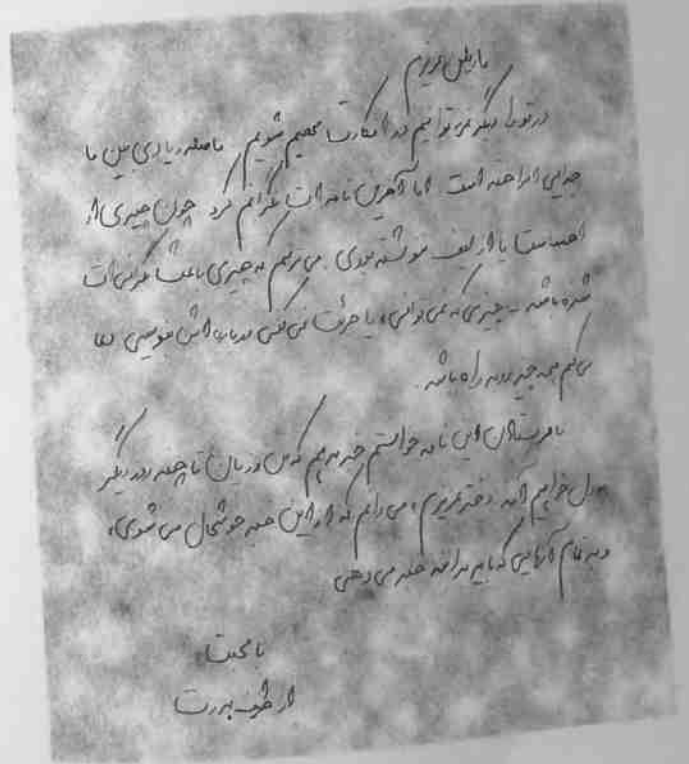 ماریلین عزیزم
من و تو دیگر نمی توانیم در افکارت سهیم شویم. فاصله زیادی بین ما
جدایی انداخته است. اما آخرین نامه ات نگرانم کرد. چون چیزی از
احساست یا از لیف ننوشته بودی. می ترسم که چیزی باعث نگرانی ات
شده باشد - چیزی که نمی توانی، یا جرئت نمی کنی درباره اش بنویسی. دعا
می کنم همه چیز روبه راه باشد.
با فرستادن این نامه خواستم خبر بدهم که من و ریان تا چند روز دیگر
خواهیم آمد. دختر عزیزم، می دانم که از این خبر خوشحال می شوی،
و به تمام آنهایی که باید بدانند خبر می دهی
با محبت،
از طرف پدرت